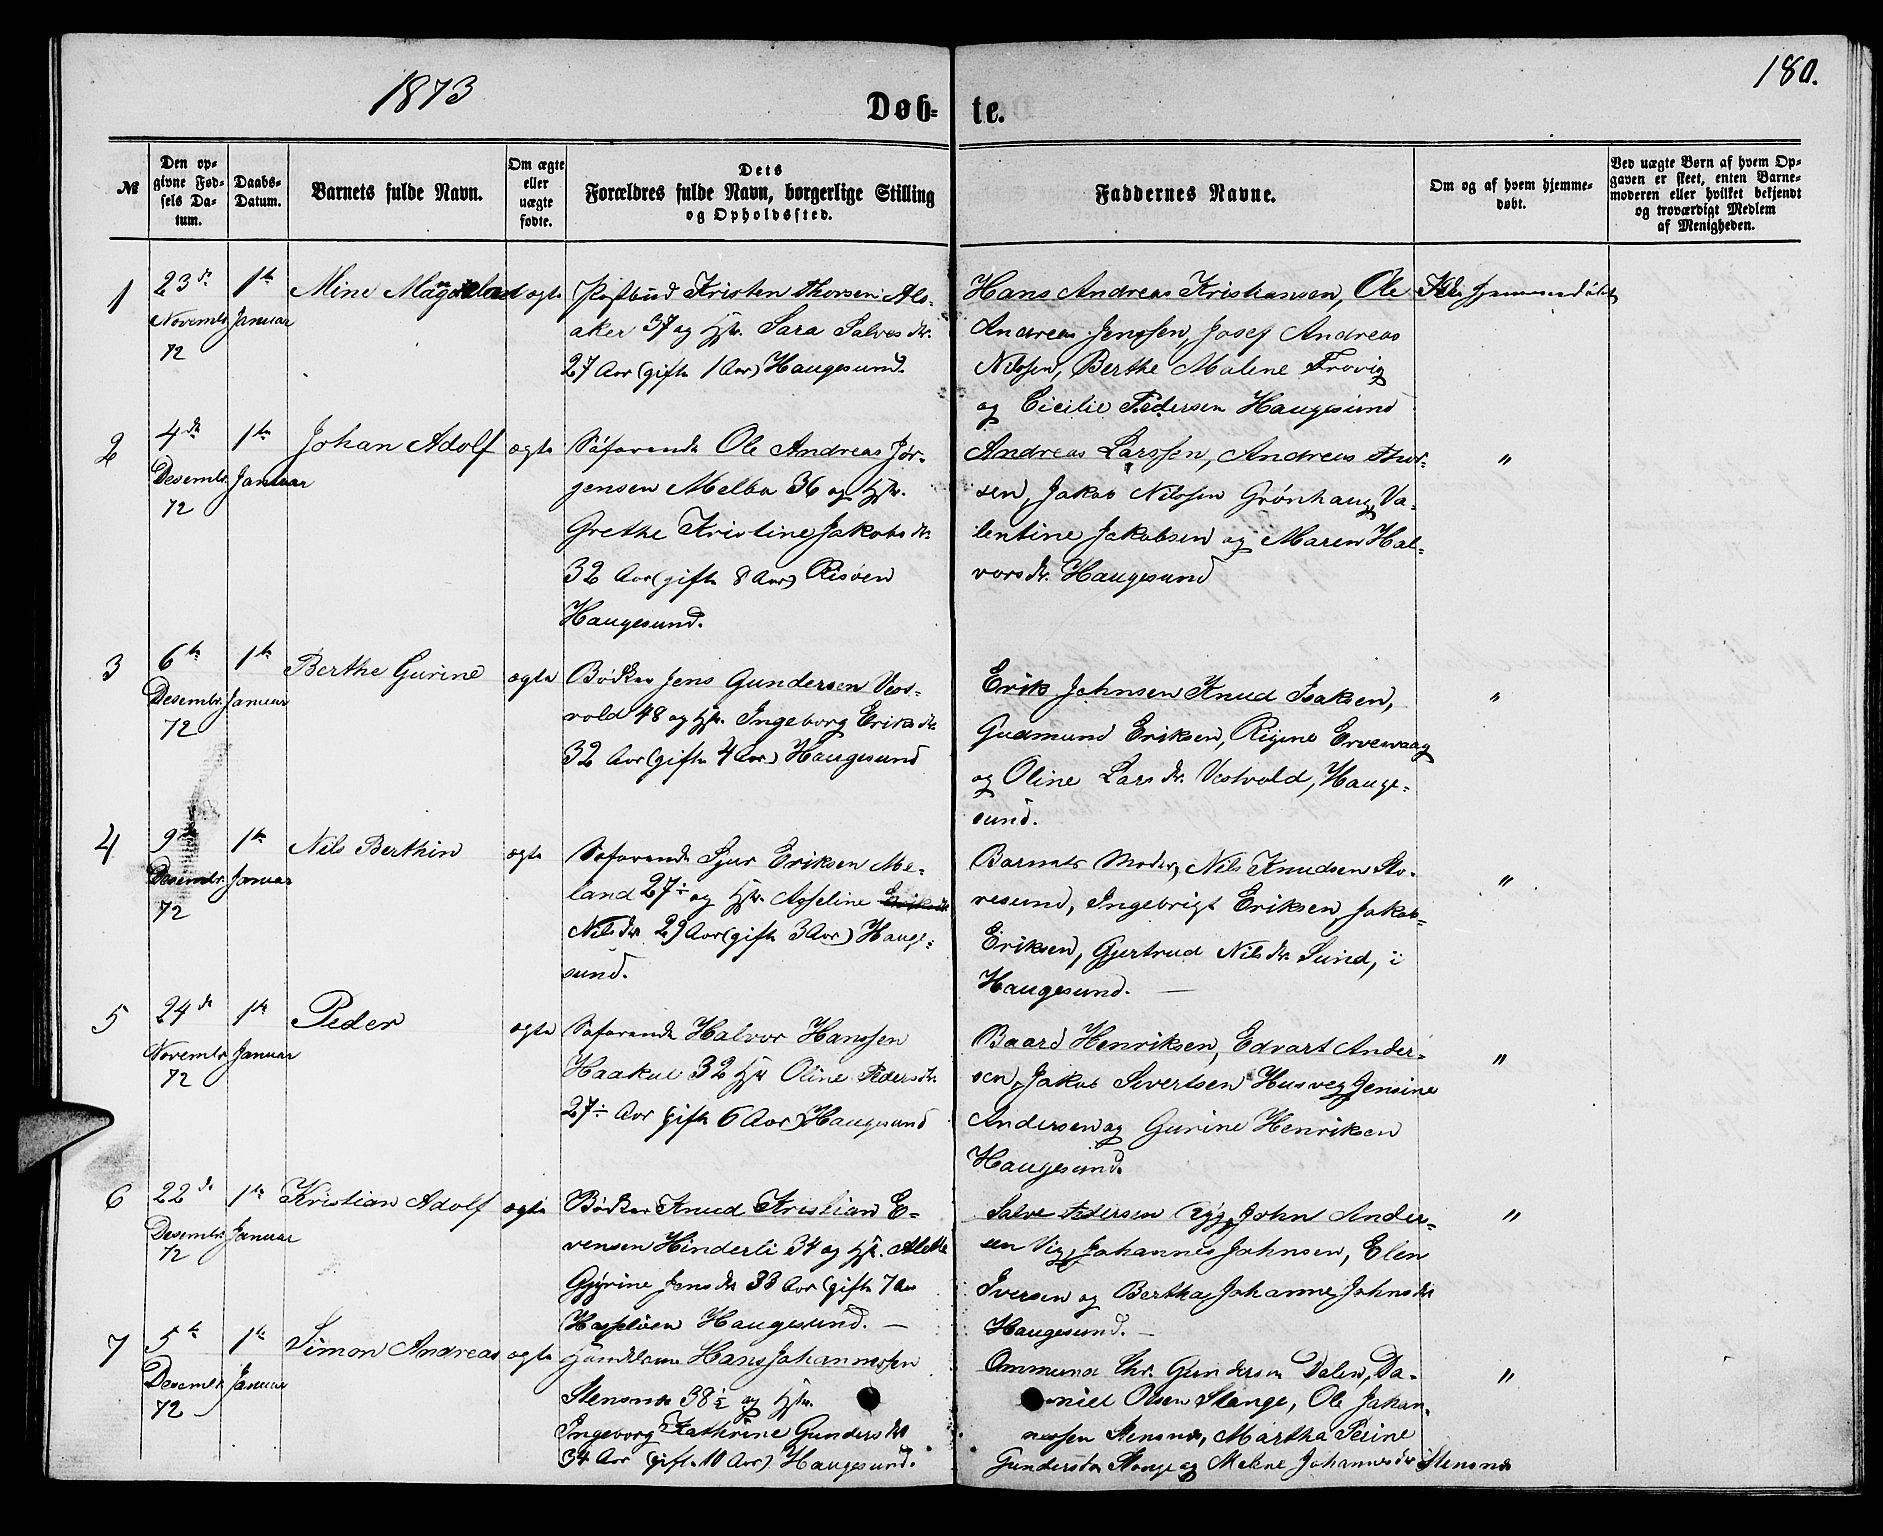 1873
180.
Døb-
te.
№
Den op-
givne Fød-
sels Da-
tum.
Daabs-
Datum.
Barnets fulde Navn.
Om ægte
eller
uægte
fødte.
Dets
Forældres fulde Navn, borgerlige Stilling
og Opholdssted.
Faddernes Navne.
Om og af hvem hjemme-
døbt.
Ved uægte Børn af hvem Op-
gaven er skeet, enten Barne-
moderen eller hvilket bekjendt
og troværdigt Medlem
af Menigheden.
1
23de
Novembr
72
1te
Januar
Mine
ægte
Postbud Kristen Thorsen Als-
aker 37 og Hstr. Sara Salves dtr.
27 Aar (gifte 1 Aar) Haugesund.
Hans Andreas Kristiansen, Ole
Andreas Jenssen, Josef Andreas
Nilssen, Berthe Malene Frovig
og Cicilie Pedersen Haugesund
Ikke hjemmedøbt
2
4de
Desembr.
72
1te
Januar
Johan Adolf
ægte
Søfarende Ole Andreas Jør-
gensen Melbø 36 og Hstr.
Grethe Kristine Jakobs dtr.
32 Aar (gifte 8 Aar) Risøen
Haugesund.
Andreas Larssen, Andreas Thor-
sen, Jakob Nilssen Grønhaug, Va-
lentine Jakobsen og Maren Hal-
vors dtr. Haugesund
"
3
6te
Desembr.
72
1te
Januar
Berthe Gurine
ægte
Bødker Jens Gundersen Vest-
vold 48 og Hstr. Ingeborg Eriks dtr.
32 Aar (gifte 4 Aar) Haugesund
Erik Johnsen Knud Isaksen,
Gudmund Eriksen, Regine Ervesvaag
og Oline Lars dtr. Vestvold, Hauge-
sund.
"
4
9de
Desembr.
72
1te
Januar
Nils Berthin
ægte
Søfarende Sjur Eriksen Me-
land 27½ og Hstr. Asseline Eriks dtr.
Nils dtr. 29 Aar (gifte 3 Aar) Hauge-
sund.
Barnets Moder, Nils Knudsen Sto-
resund, Ingebrigt Eriksen, Jakob
Eriksen, Gjertrud Nils dtr. Sund, i
Haugesund. —
"
5
24de
Novembr.
72
1te
Januar
Peder
ægte
Søfarende Halvor Hanssen
Haakul 32 Hstr Oline Peders dtr.
27½ Aar (gifte 6 Aar) Haugesund
Baard Henriksen, Edvart Ander-
sen, Jakob Sivertsen Husveg, Jensine
Andersen og Gurine Henriksen
Haugesund.
"
6
22de
Desembr.
72
1te
Januar
Kristian Adolf
ægte
Bødker Knud Kristian E-
vensen Hinderli 34 og Hstr. Alette
Gyrine Jens dtr 33 Aar (gifte 7 Aar
Hasseløen Haugesund. —
Salve Pedersen Ryg, John Ander-
sen Vig, Johannes Johnsen, Elen
Iversen og Bertha Johanne Johns dtr
Haugesund. —
"
7
5te
Desembr
72
1te
Januar
Simon Andreas
ægte
Hans Johannessen
Stensnæs 38½ og Hstr.
Ingeborg Kathrine Gunders dtr
34 Aar (gifte 10 Aar) Haugesund.
Ommund Chr. Gundersen Dalen, Da-
niel Olsen Stange, Ole Johan-
nessen Stensnæs, Martha Serine
Gundersdtr Stange og Malene Johannesdtr Stensnæs
"